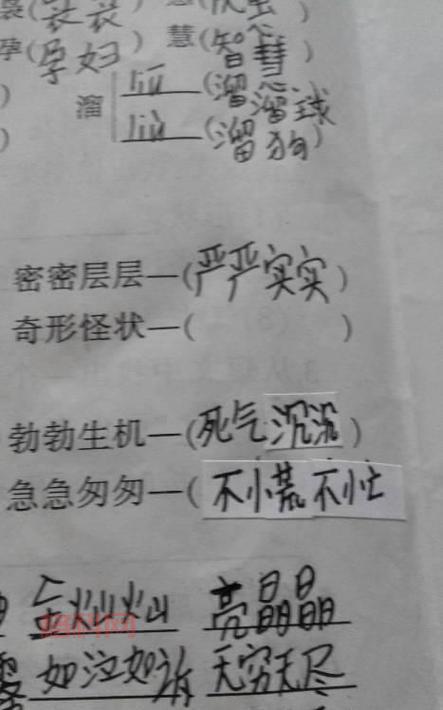 袅(袅袅
孕(孕妇) 慧(智慧)
溜 liū (溜溜球
liù (溜狗)
密密层层—(严严实实)
奇形怪状—( )
勃勃生机—(死气沉沉)
急急匆匆—(不慌不忙
金灿灿 亮晶晶
如泣如诉 无穷无尽